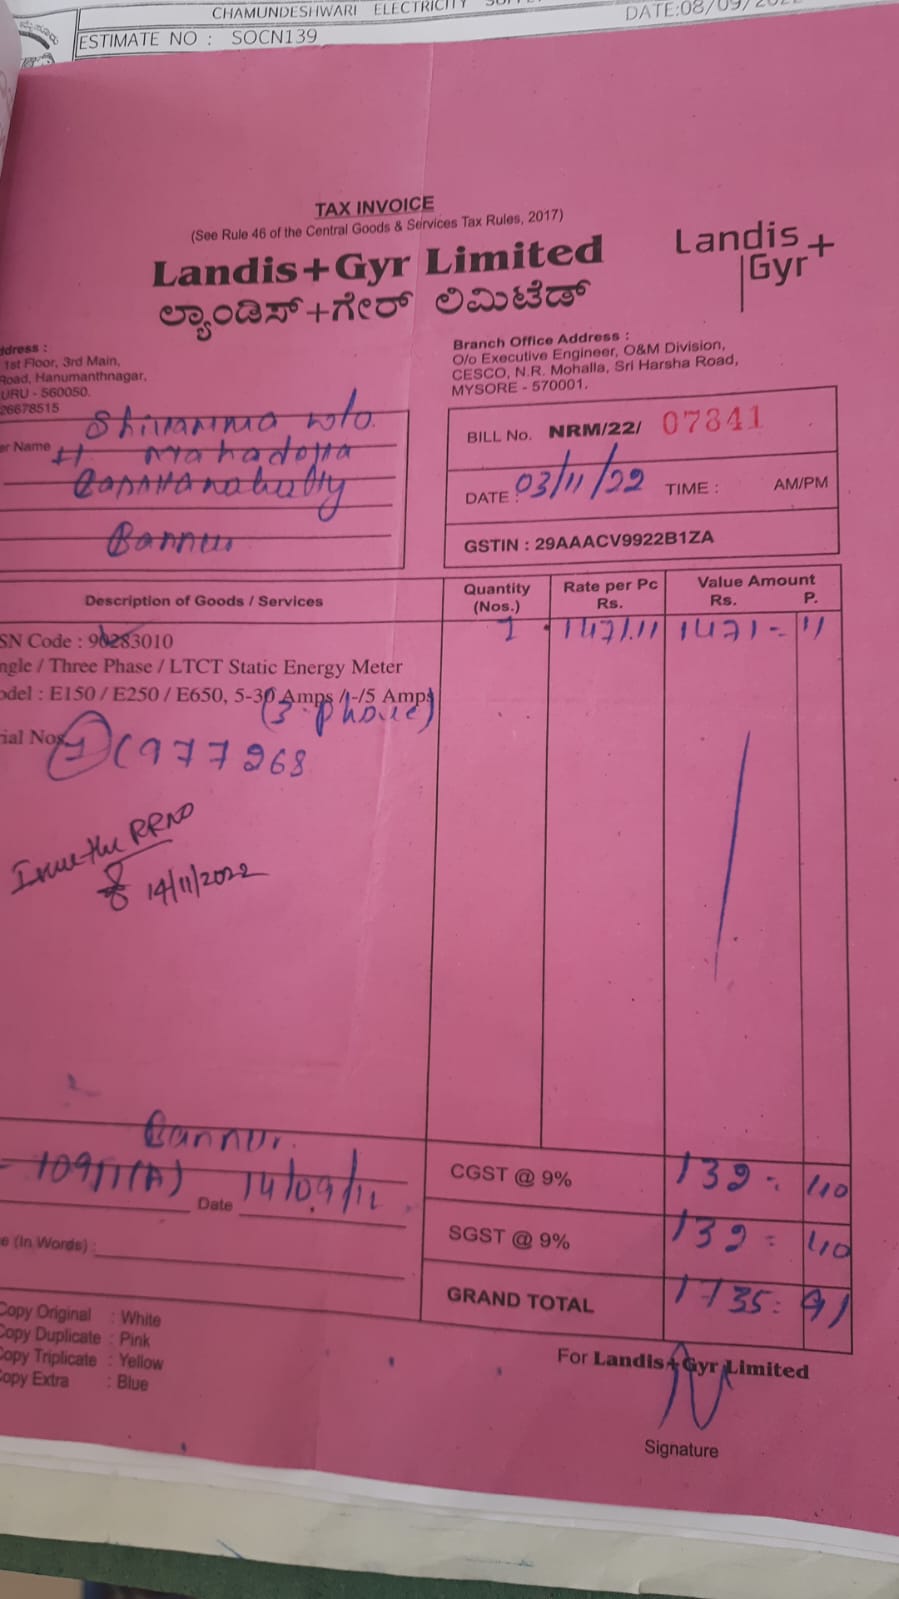 CHAMUNDESHWARI ELECTRICITY
ESTIMATE NO : SOCN139
DATE:08/09/
TAX INVOICE
(See Rule 46 of the Central Goods & Services Tax Rules, 2017)
Landis+Gyr Limited
Landis
Gyr+
ಲ್ಯಾಂಡಿಸ್+ಗೇರ್ ಲಿಮಿಟೆಡ್
ddress :
1st Floor, 3rd Main,
Road, Hanumanthnagar,
URU - 560050.
26678515
Branch Office Address :
O/o Executive Engineer, O&M Division,
CESCO, N.R. Mohalla, Sri Harsha Road,
MYSORE - 570001.
er Name
Shivamma w/o
H
Bannur
BILL No. NRM/22/ 07841
DATE : 03/11/22 TIME : AM/PM
GSTIN : 29AAACV9922B1ZA
Description of Goods / Services
Quantity (Nos.)
Rate per Pc Rs.
Value Amount Rs. P.
SN Code : 90283010
1 1471.11 1471 = 11
ngle / Three Phase / LTCT Static Energy Meter
odel : E150 / E250 / E650, 5-30 Amps /-/5 Amps
(3-phase)
rial Nos.
1977268
Issue the RRNO
14/11/2022
Bannur.
10911(A) Date
CGST @ 9% 132 = 40
SGST @ 9% 132 = 40
e (In Words) :
GRAND TOTAL 1735 = 91
Copy Original : White
Copy Duplicate : Pink
Copy Triplicate : Yellow
Copy Extra : Blue
For Landis+Gyr Limited
Signature